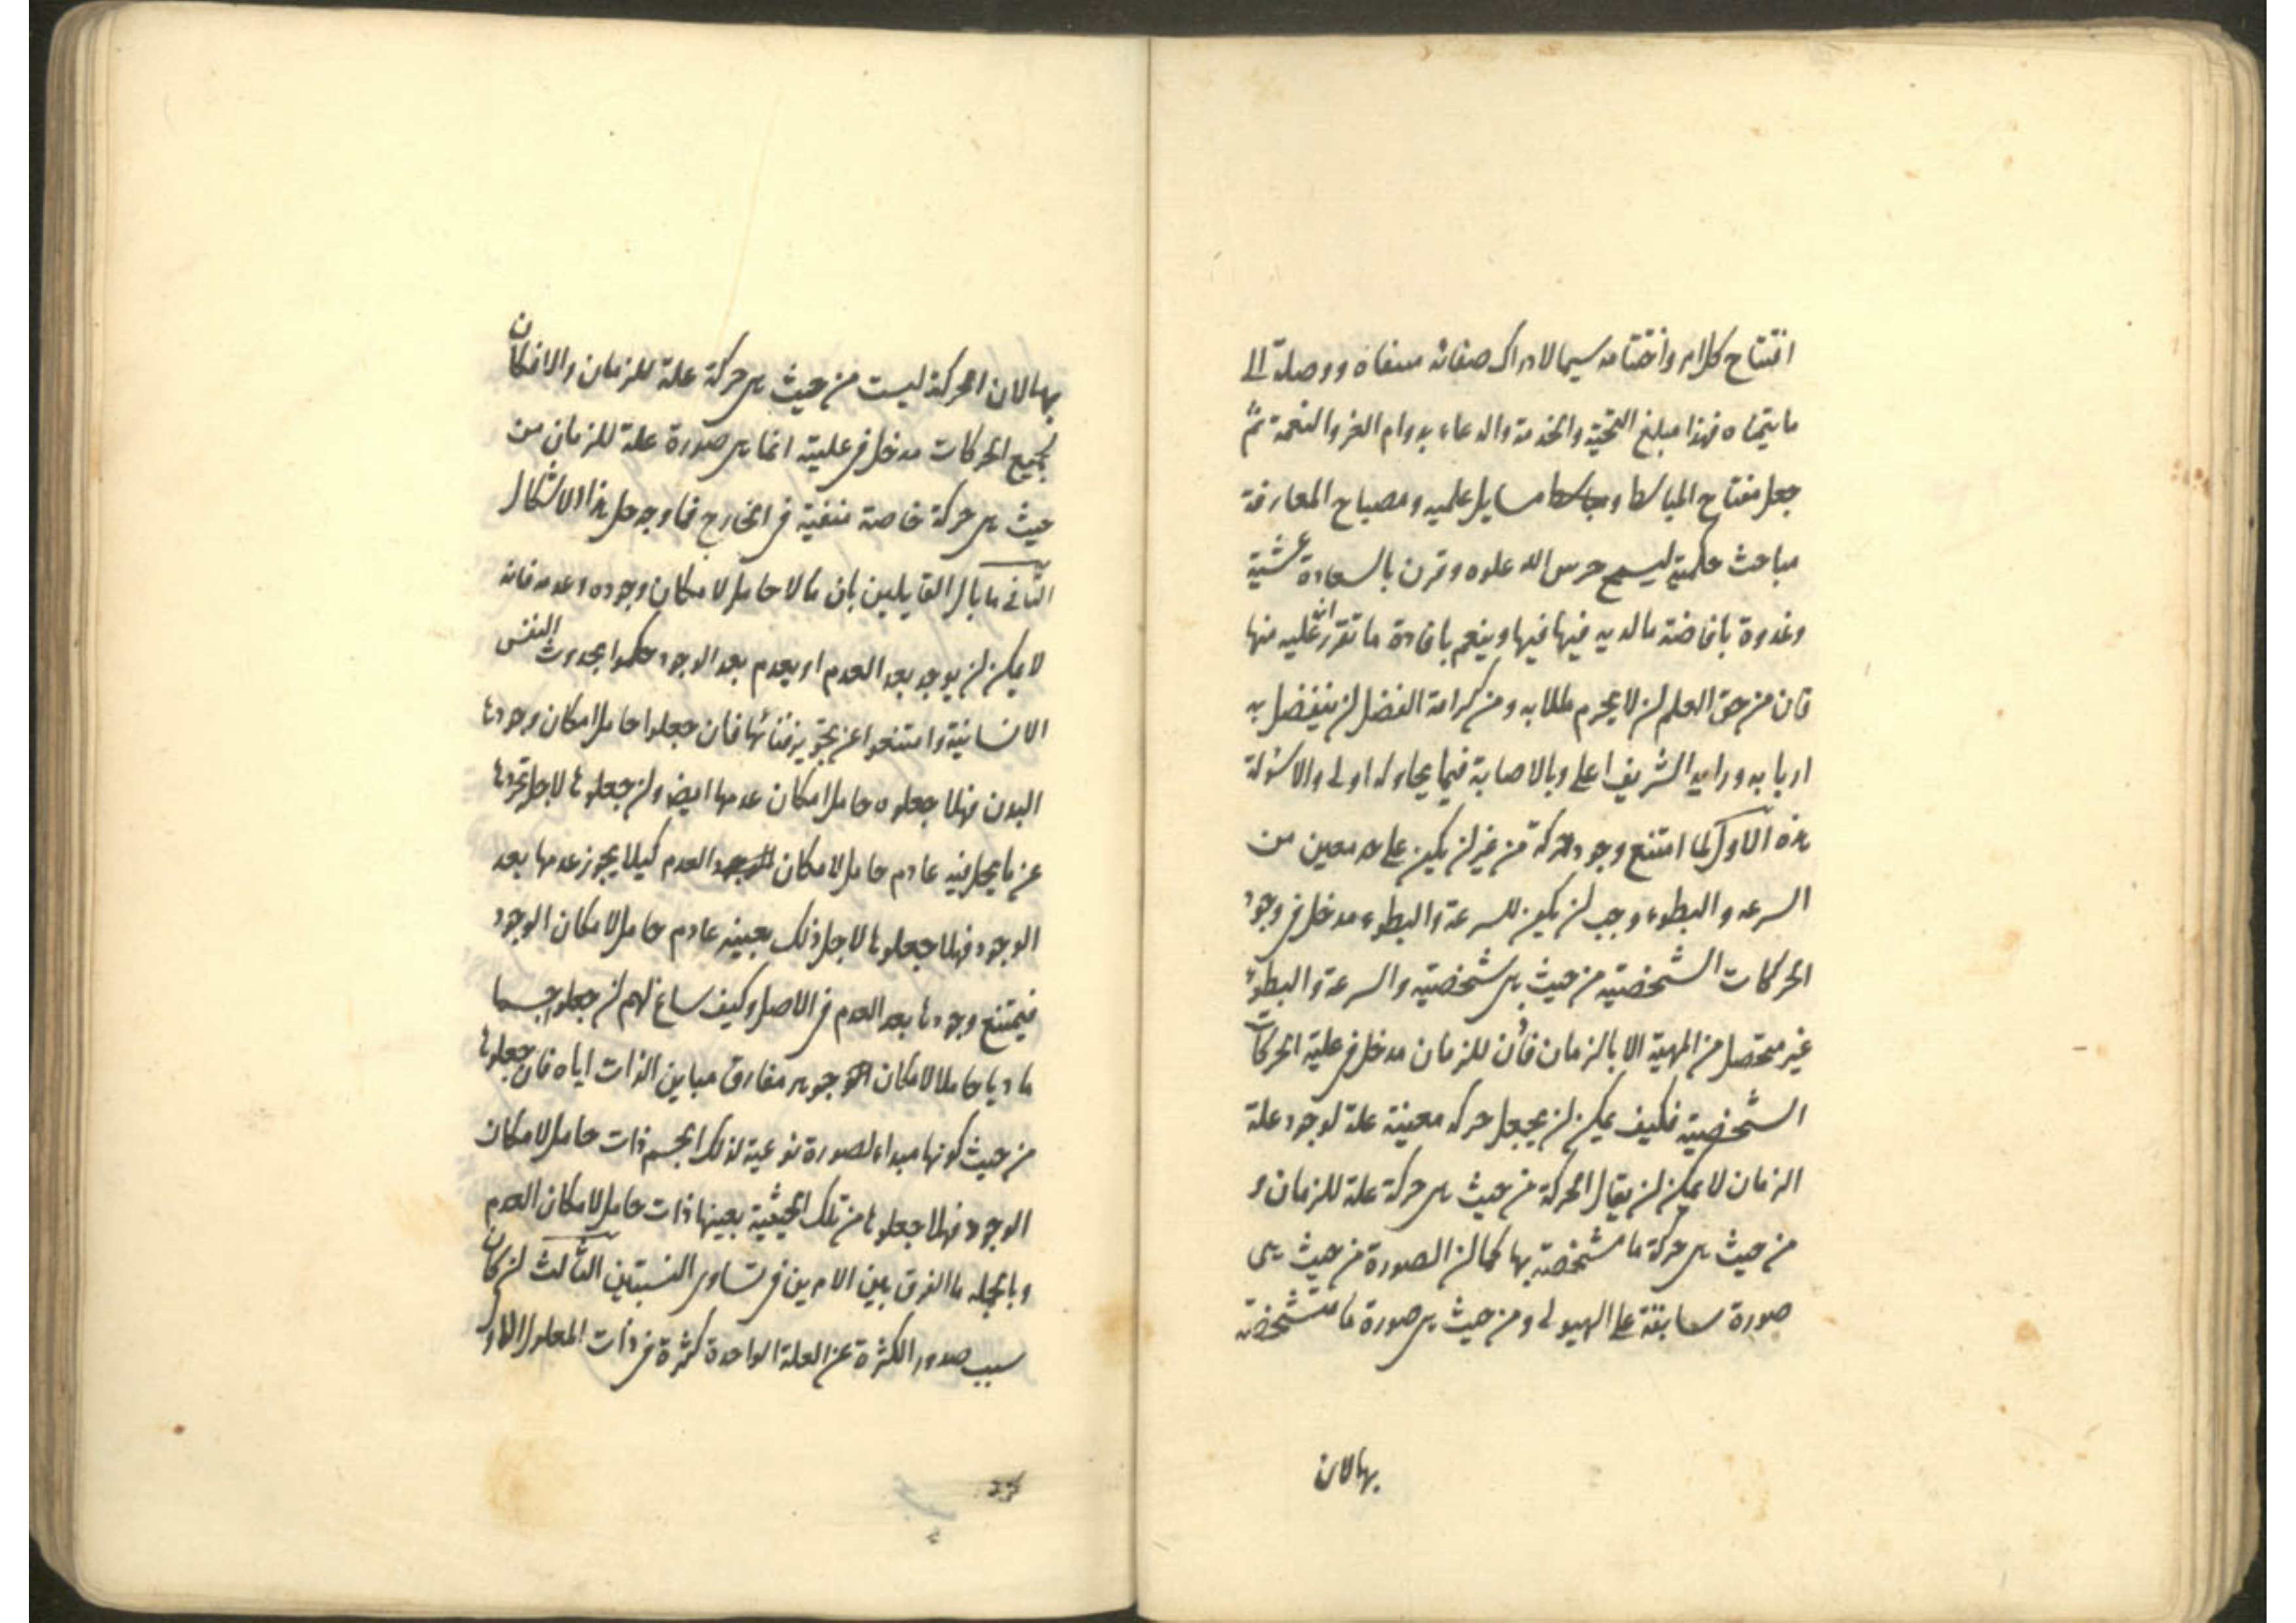 افتتاح كلام واختتامه سيما لادراك صفاته مسعاه ووصلة الى
ما يتمناه فهذا مبلغ التحية والخدمة والدعاء بدوام العز والنعمة ثم
جعل مفتاح مسايل علميه ومصباح المعارفة
مباحث حكمية ليسمح حرس الله علوه وقرن بالسعادة عشية
وغدوة بافاضة ما لديه فيها وينعم بافادة ما تقرر عليه منها
فان من حق العلم ان لا يحرم طلابه ومن كرامة الفضل ان يتفضل به
اربابه ورايه الشريف اعلى وبالاصابة فيما يحاوله اولى والاسئولة
هذه الاول لما امتنع وجود حركة من غير ان يكون على حد معين من
السرعه والبطوء وجب ان يكون للسرعة والبطوء مدخل في وجود
الحركات الشخصية من حيث هى شخصية والسرعة والبطوء
غير متحصل من المهية الا بالزمان فاذن للزمان مدخل في علية الحركات
الشخصية فكيف يمكن ان يجعل حركه معينة علة لوجود علة
الزمان لا يمكن ان يقال الحركة من حيث هى حركة علة للزمان و
من حيث هى حركة ما متشخصة بها كما ان الصورة من حيث هى
صورة سابقة على الهيولى ومن حيث هى صورة ما متشخصة
بها لان
بها لان الحركة ليست من حيث هى حركة علة للزمان والا فكان
لجميع الحركات مدخل في عليته انما هى صورة علة للزمان من
حيث هى حركة خاصة متعينة في الخارج فما وجه حل هذا الاشكال
الثانى ما بال القايلين بان ما لا حامل لامكان وجوده وعدمه فانه
لا يمكن ان يوجد بعد العدم او يعدم بعد الوجود حكموا بحدوث النفس
الانسانية وامتنعوا عن تجويز فنائها فان جعلوا حامل امكان وجودها
البدن فهلا جعلوه حامل امكان عدمها ايضا وان جعلوها لاجل تجردها
عن ما يحل فيه عادم حامل لامكان العدم كيلا يجوز عدمها بعد
الوجود فهلا جعلوها لاجل ذلك بعينه عادم حامل لامكان الوجود
فيمتنع وجودها بعد العدم في الاصل وكيف ساغ لهم ان جعلوا جسما
ماديا حاملا لامكان جوهر مفارق مباين الذات اياه فان جعلوها
من حيث كونها مبداء لصورة نوعية لذلك الجسم ذات حامل لامكان
الوجود فهلا جعلوها من تلك الحيثية بعينها ذات حامل لامكان العدم
وبالجمله ما الفرق بين الامرين في تساوى النسبتين الثالث ان كان
سبب صدور الكثرة عن العلة الواحدة كثرة في ذات المعلول الاول